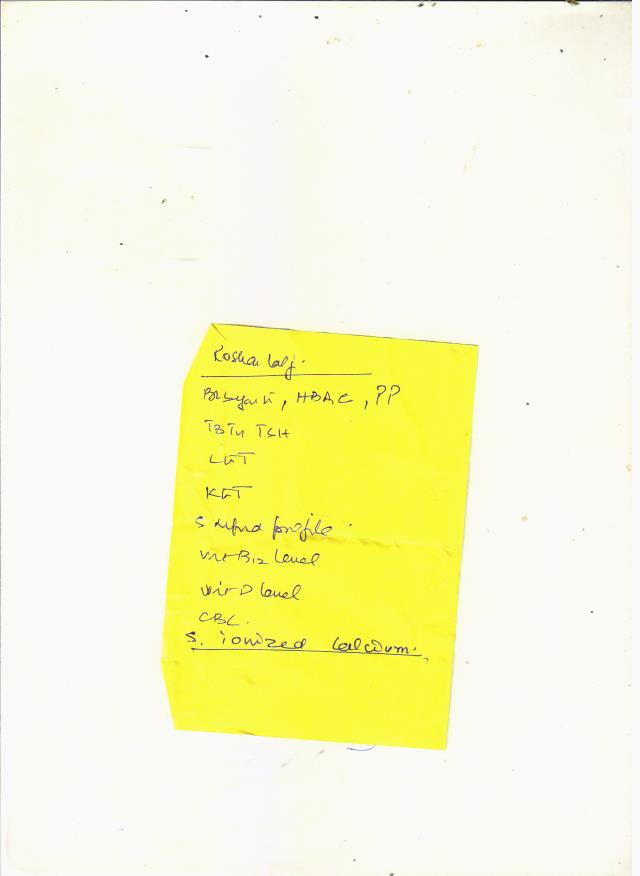 Roshan Lalj.
Bl sugar F, HBAC, PP
T3 T4 TSH
LFT
KFT
S lipid profile.
vit B12 Level
vit D level
CBC.
S. ionized calcium.